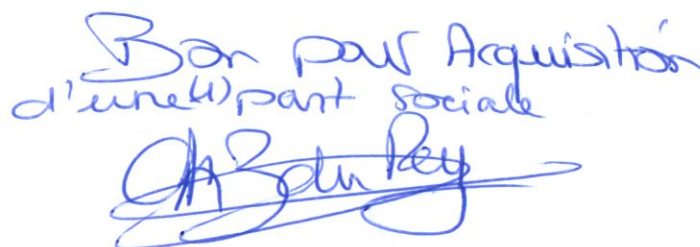 Bon pour Acquisition
d'une(1) part sociale